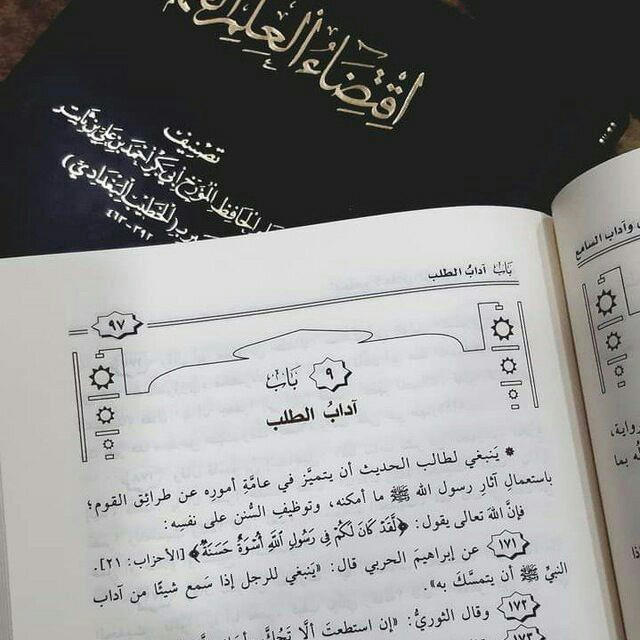 اقْتِضَاءُ العِلْمِ
تصنيف
الحافظ المؤرخ أبي بكر أحمد بن علي بن ثابت
الخطيب البغدادي)
٣٩٢-٤٦٣
وآداب السامع
بَابُ آدابُ الطلب
٩٧
٩ بَابُ
آدابُ الطلب
* يَنبغي لطالب الحديث أن يتميَّز في عامَّةِ أموره عن طرائِق القوم؛
باستعمالِ آثارِ رسول الله ﷺ ما أمكنه، وتوظيفِ السُّنن على نفسِه؛
فإنَّ اللهَ تعالى يقول: ﴿لَّقَدْ كَانَ لَكُمْ فِي رَسُولِ اللَّهِ أُسْوَةٌ حَسَنَةٌ﴾ [الأحزاب: ٢١].
١٧١ عن إبراهيمَ الحربي قال: «يَنبغي للرجل إذا سَمع شيئًا من آداب
النبيِّ ﷺ أن يتمسَّكَ به».
١٧٢ وقال الثوريُّ: «إن استطعتَ ألَّا
١٧٣
رواية،
بما